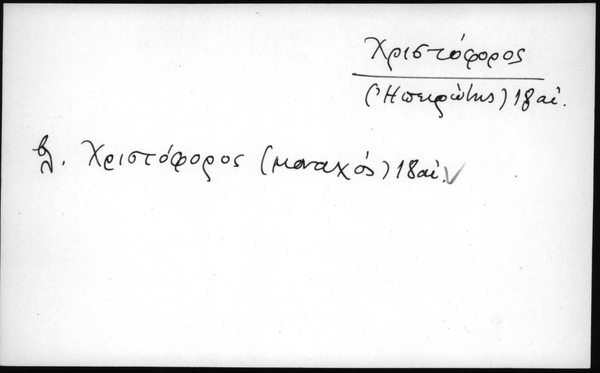 Χριστόφορος
(Ἠπειρώτης) 18 αἰ.
βλ. Χριστόφορος (μοναχός) 18 αἰ.